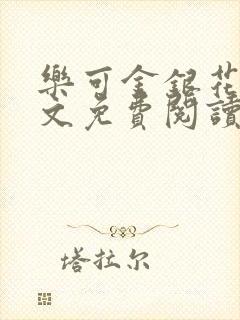 樂可金銀花
文免費閱讀
塔拉尔